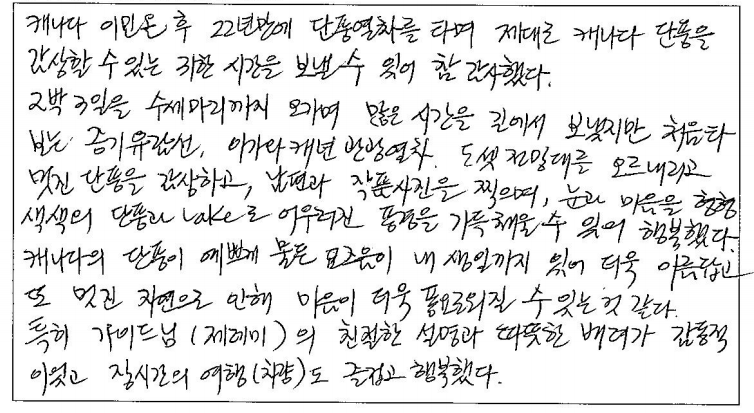 캐나다 이민온 후 22년만에 단풍열차를 타며 제대로 캐나다 단풍을
감상할 수 있는 귀한 시간을 보낼 수 있어 참 감사했다.
2박 3일을 수세마리까지 오가며 많은 시간을 길에서 보냈지만 처음타
보는 증기유람선, 아가와캐년 관광열차. 도셋 전망대를 오르내리고
멋진 단풍을 감상하고, 남편과 작품사진을 찍으며, 눈과 마음을 형형
색색의 단풍과 Lake로 어우러진 풍경을 가득채울 수 있어 행복했다
캐나다의 단풍이 예쁘게 물든 요즈음이 내 생일까지 있어 더욱 아름답고
또 멋진 자연으로 인해 마음이 더욱 풍요로워질 수 있는 것 같다.
특히 가이드님 (제레미) 의 친절한 설명과 따뜻한 배려가 감동적
이었고 장시간의 여행(차량)도 즐겁고 행복했다.